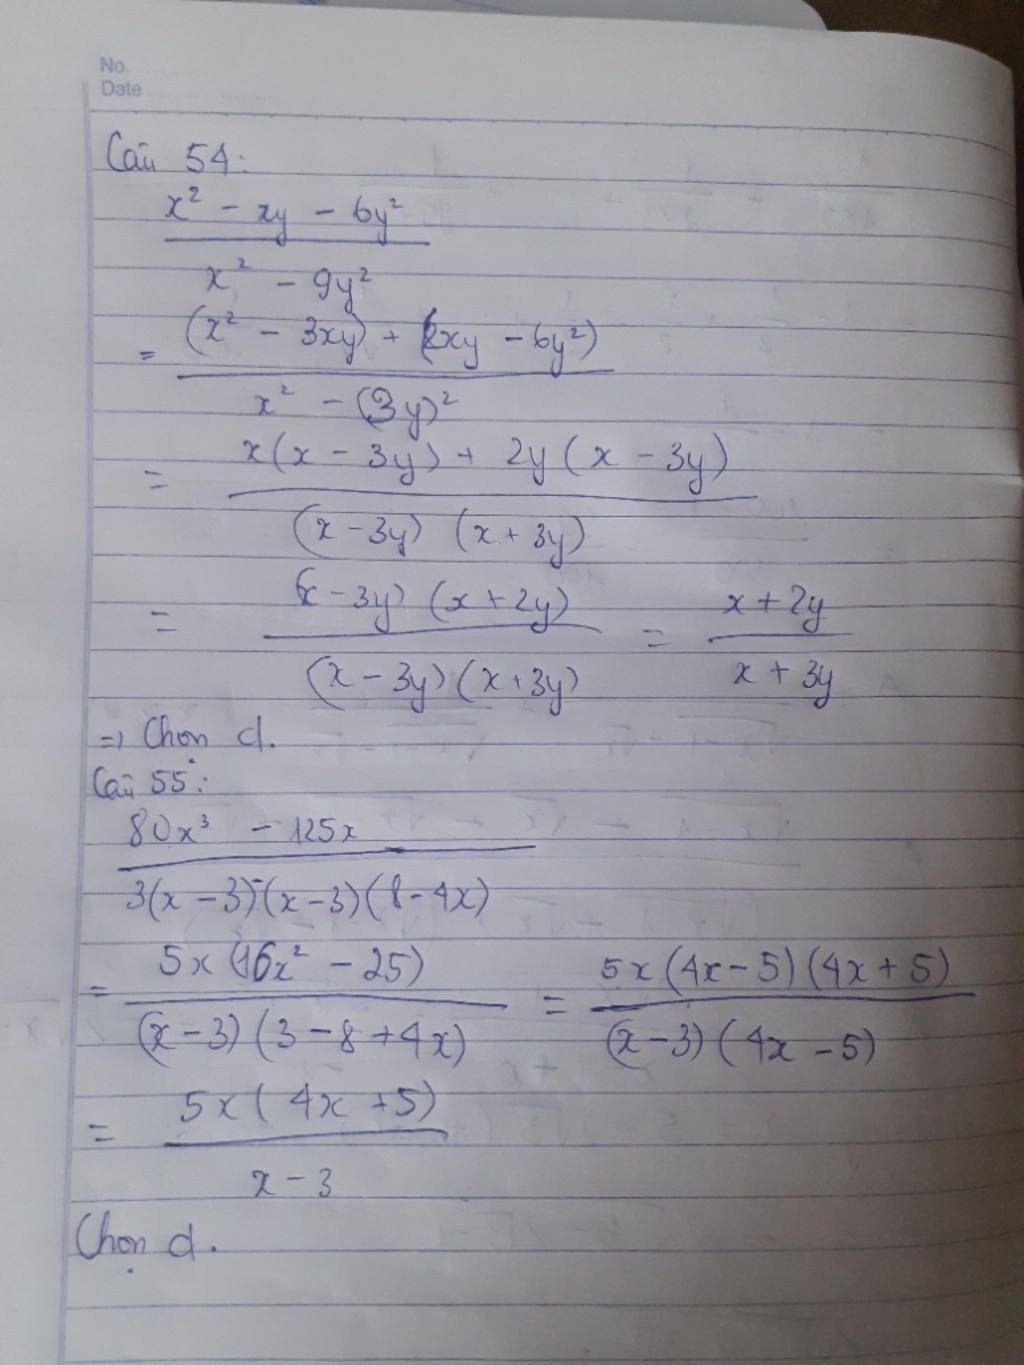 No.
Date
Câu 54:
x² - xy - 6y²
x² - 9y²
= (x² - 3xy) + (2xy - 6y²)
x² - (3y)²
= x(x - 3y) + 2y(x - 3y)
(x - 3y) (x + 3y)
= (x - 3y) (x + 2y) = x + 2y
(x - 3y) (x + 3y) x + 3y
=> Chọn d.
Câu 55:
80x³ - 125x
3(x - 3) - (x - 3)(8 - 4x)
= 5x(16x² - 25) = 5x(4x - 5)(4x + 5)
(x - 3)(3 - 8 + 4x) (x - 3)(4x - 5)
= 5x(4x + 5)
x - 3
Chọn d.